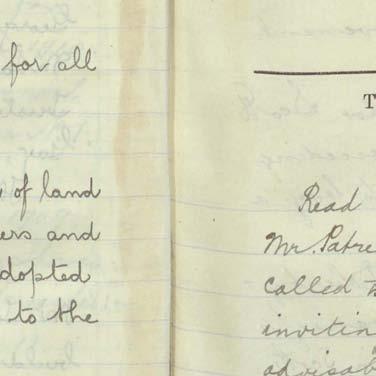 for all
of land
and
adopted
to the
T
Read
Mr. Patre
called
invitin
advisab